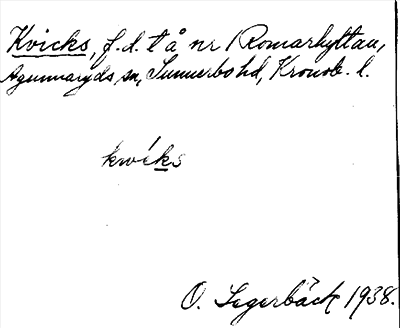 Kvicks, f.d. t å nr Romarhyttan,
Agunnaryds sn, Sunnerbo hd, Kronob. l.
kwíks
O. Segerbäck 1938.